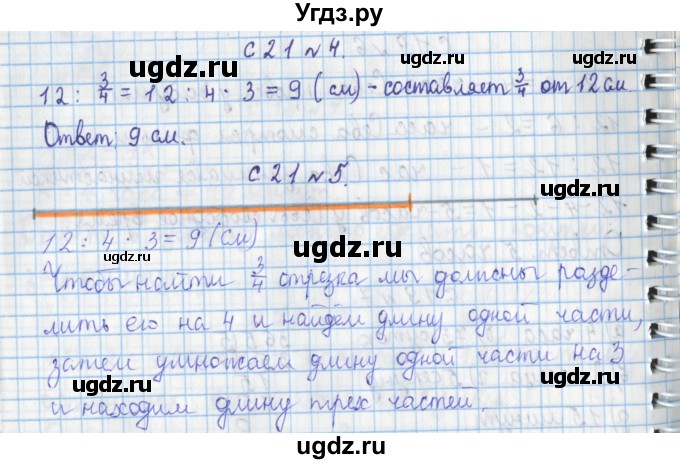 Угдз.ру
С 21 № 4.
12 : 3/4 = 12 : 4 · 3 = 9 (см) - составляет 3/4 от 12 см.
Ответ: 9 см.
С 21 № 5.
12 : 4 · 3 = 9 (см)
Чтобы найти 3/4 отрезка мы должны разде-
лить его на 4 и найдём длину одной части,
затем умножаем длину одной части на 3
и находим длину трех частей.
ugdz.ru
ugdz.ru
ugdz.ru
ugdz.ru
ugdz.ru
ugdz.ru
ugdz.ru
ugdz.ru
ugdz.ru
ugdz.ru